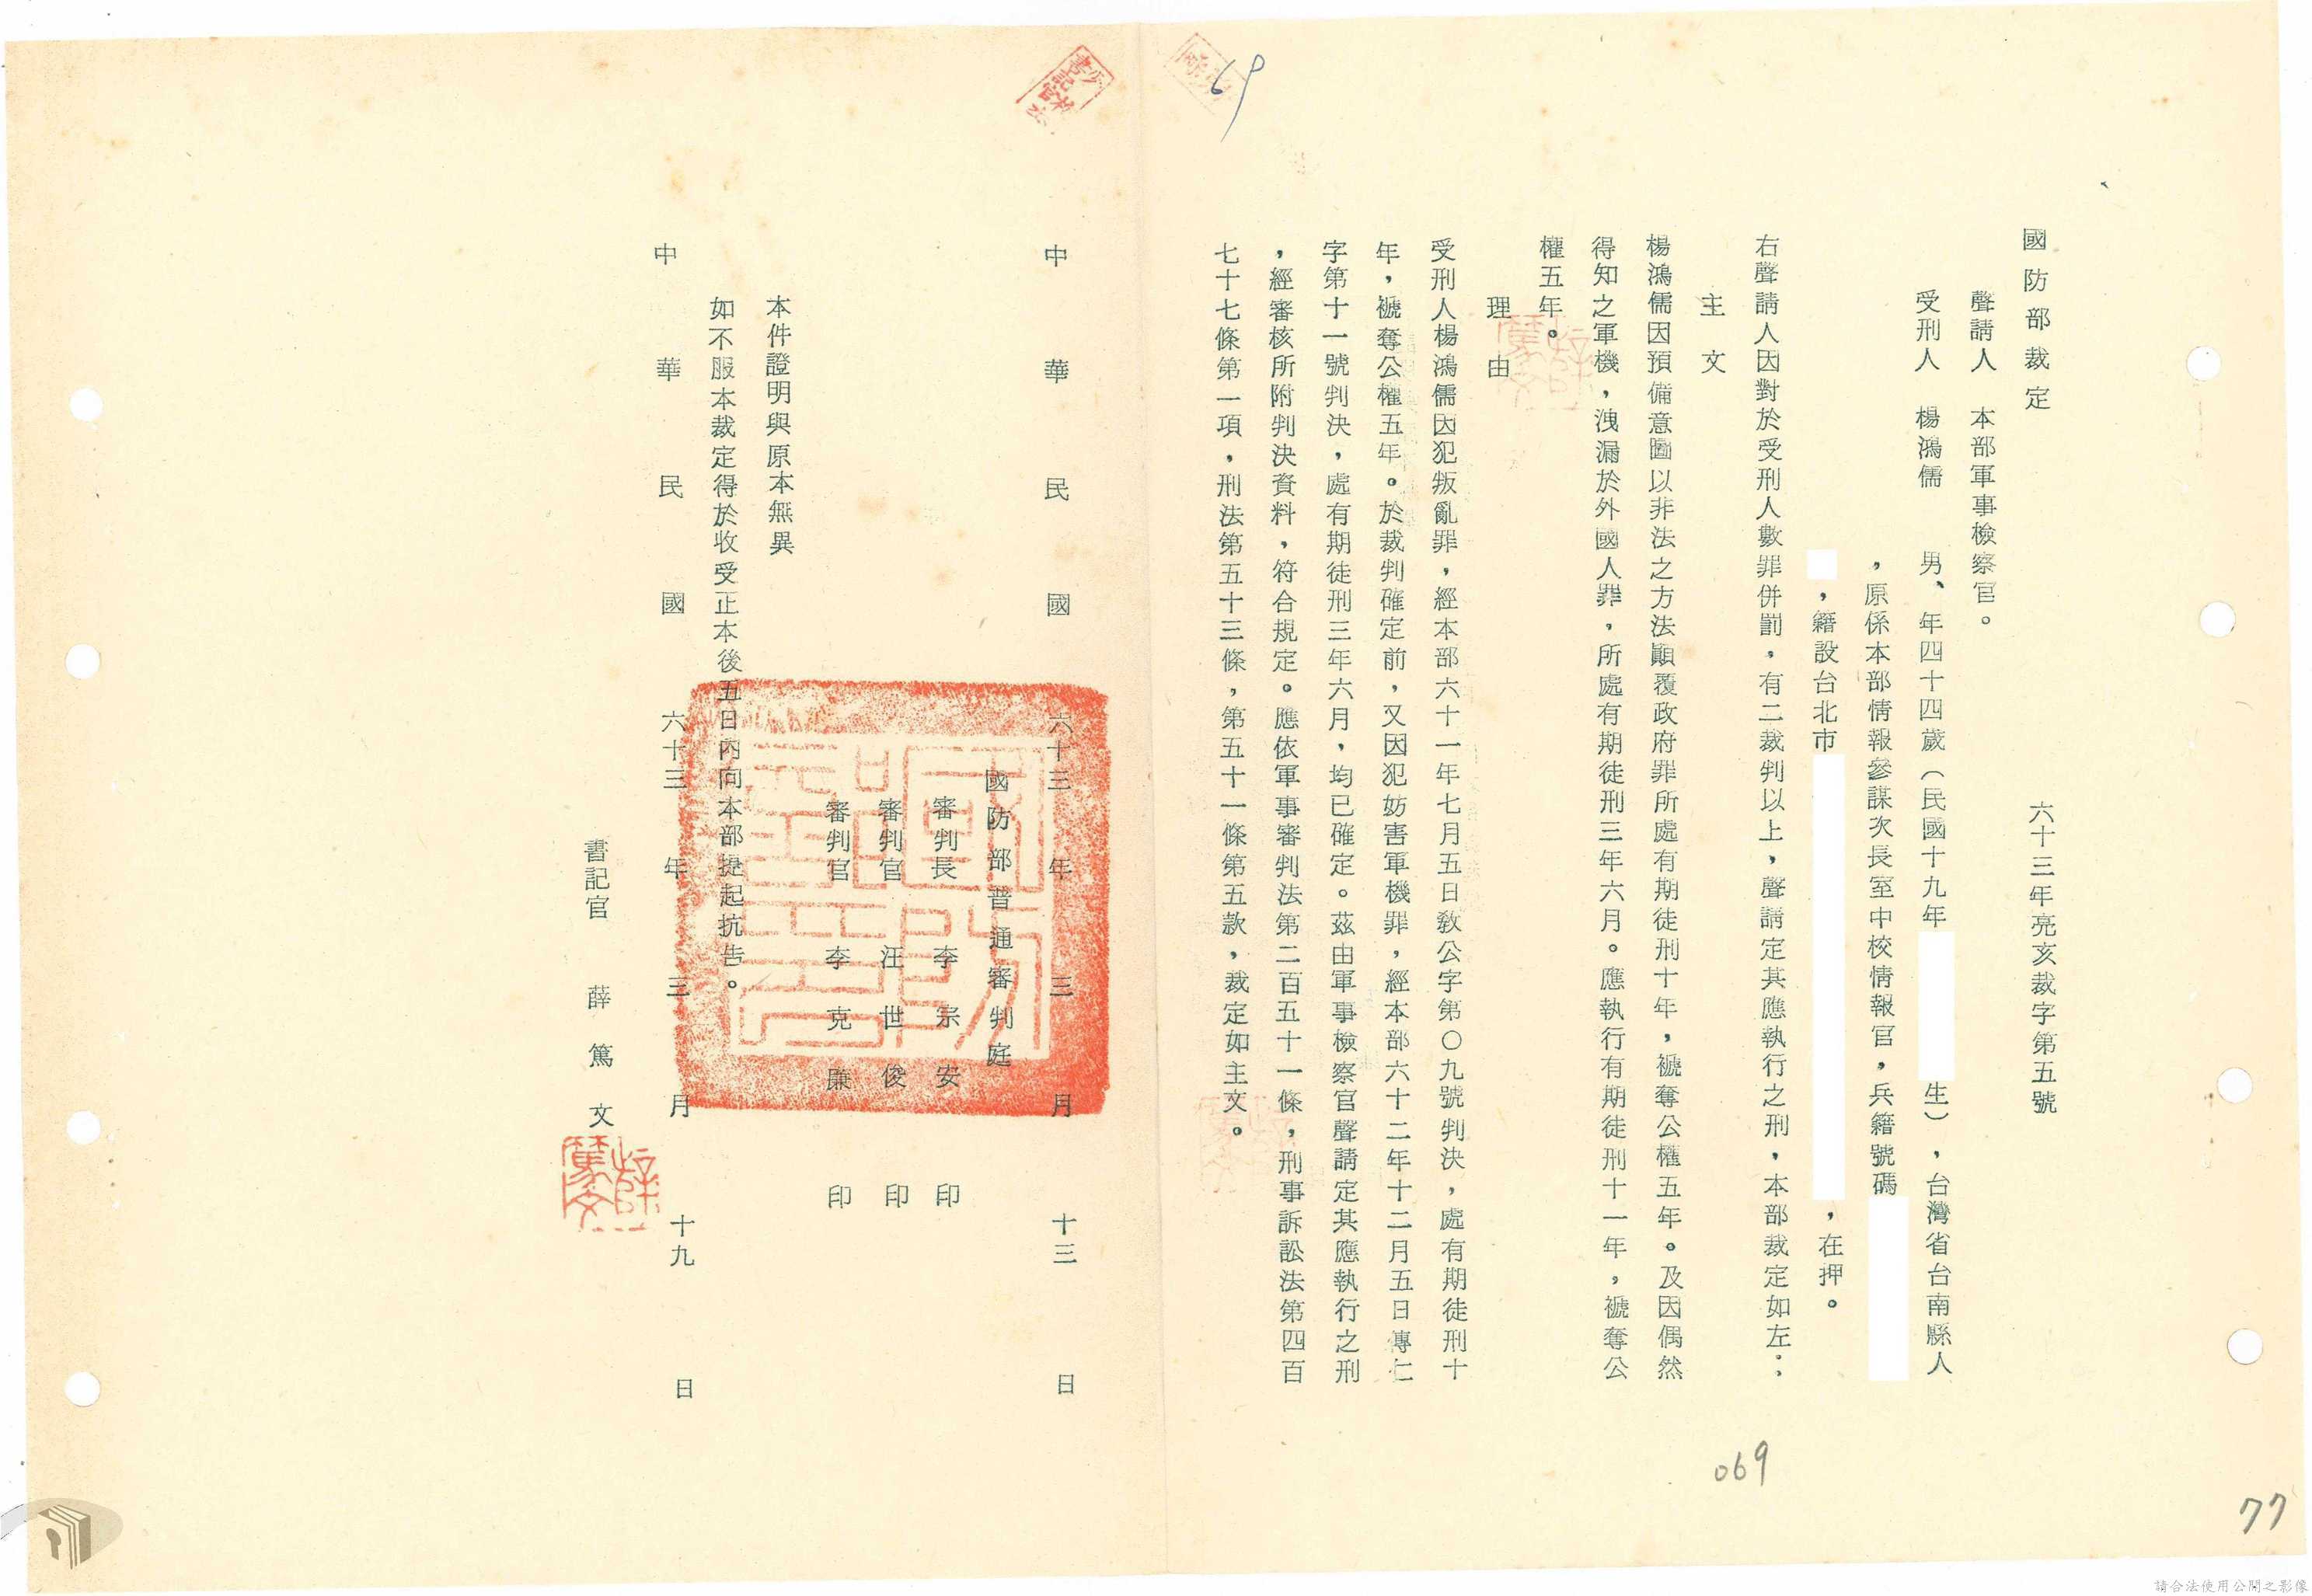 69
國防部裁定　六十三年亮亥裁字第五號
聲請人　本部軍事檢察官。
受刑人　楊鴻儒　男、年四十四歲（民國十九年　生），台灣省台南縣人
，原係本部情報參謀次長室中校情報官，兵籍號碼
，籍設台北市　，在押。
右聲請人因對於受刑人數罪併罰，有二裁判以上，聲請定其應執行之刑，本部裁定如左：
主文
楊鴻儒因預備意圖以非法之方法顚覆政府罪所處有期徒刑十年，褫奪公權五年。及因偶然
得知之軍機，洩漏於外國人罪，所處有期徒刑三年六月。應執行有期徒刑十一年，褫奪公
權五年。
理由
受刑人楊鴻儒因犯叛亂罪，經本部六十一年七月五日敎公字第〇九號判決，處有期徒刑十
年，褫奪公權五年。於裁判確定前，又因犯妨害軍機罪，經本部六十二年十二月五日傳仁
字第十一號判決，處有期徒刑三年六月，均已確定。茲由軍事檢察官聲請定其應執行之刑
，經審核所附判決資料，符合規定。應依軍事審判法第二百五十一條，刑事訴訟法第四百
七十七條第一項，刑法第五十三條，第五十一條第五款，裁定如主文。
中華民國六十三年三月十三日
國防部普通審判庭
審判長　李宗安　印
審判官　汪世俊　印
審判官　李克廉　印
本件證明與原本無異
如不服本裁定得於收受正本後五日內向本部提起抗告。
中華民國六十三年三月十九日
書記官　薛篤文
薛篤文
069
77
請合法使用公開之影像